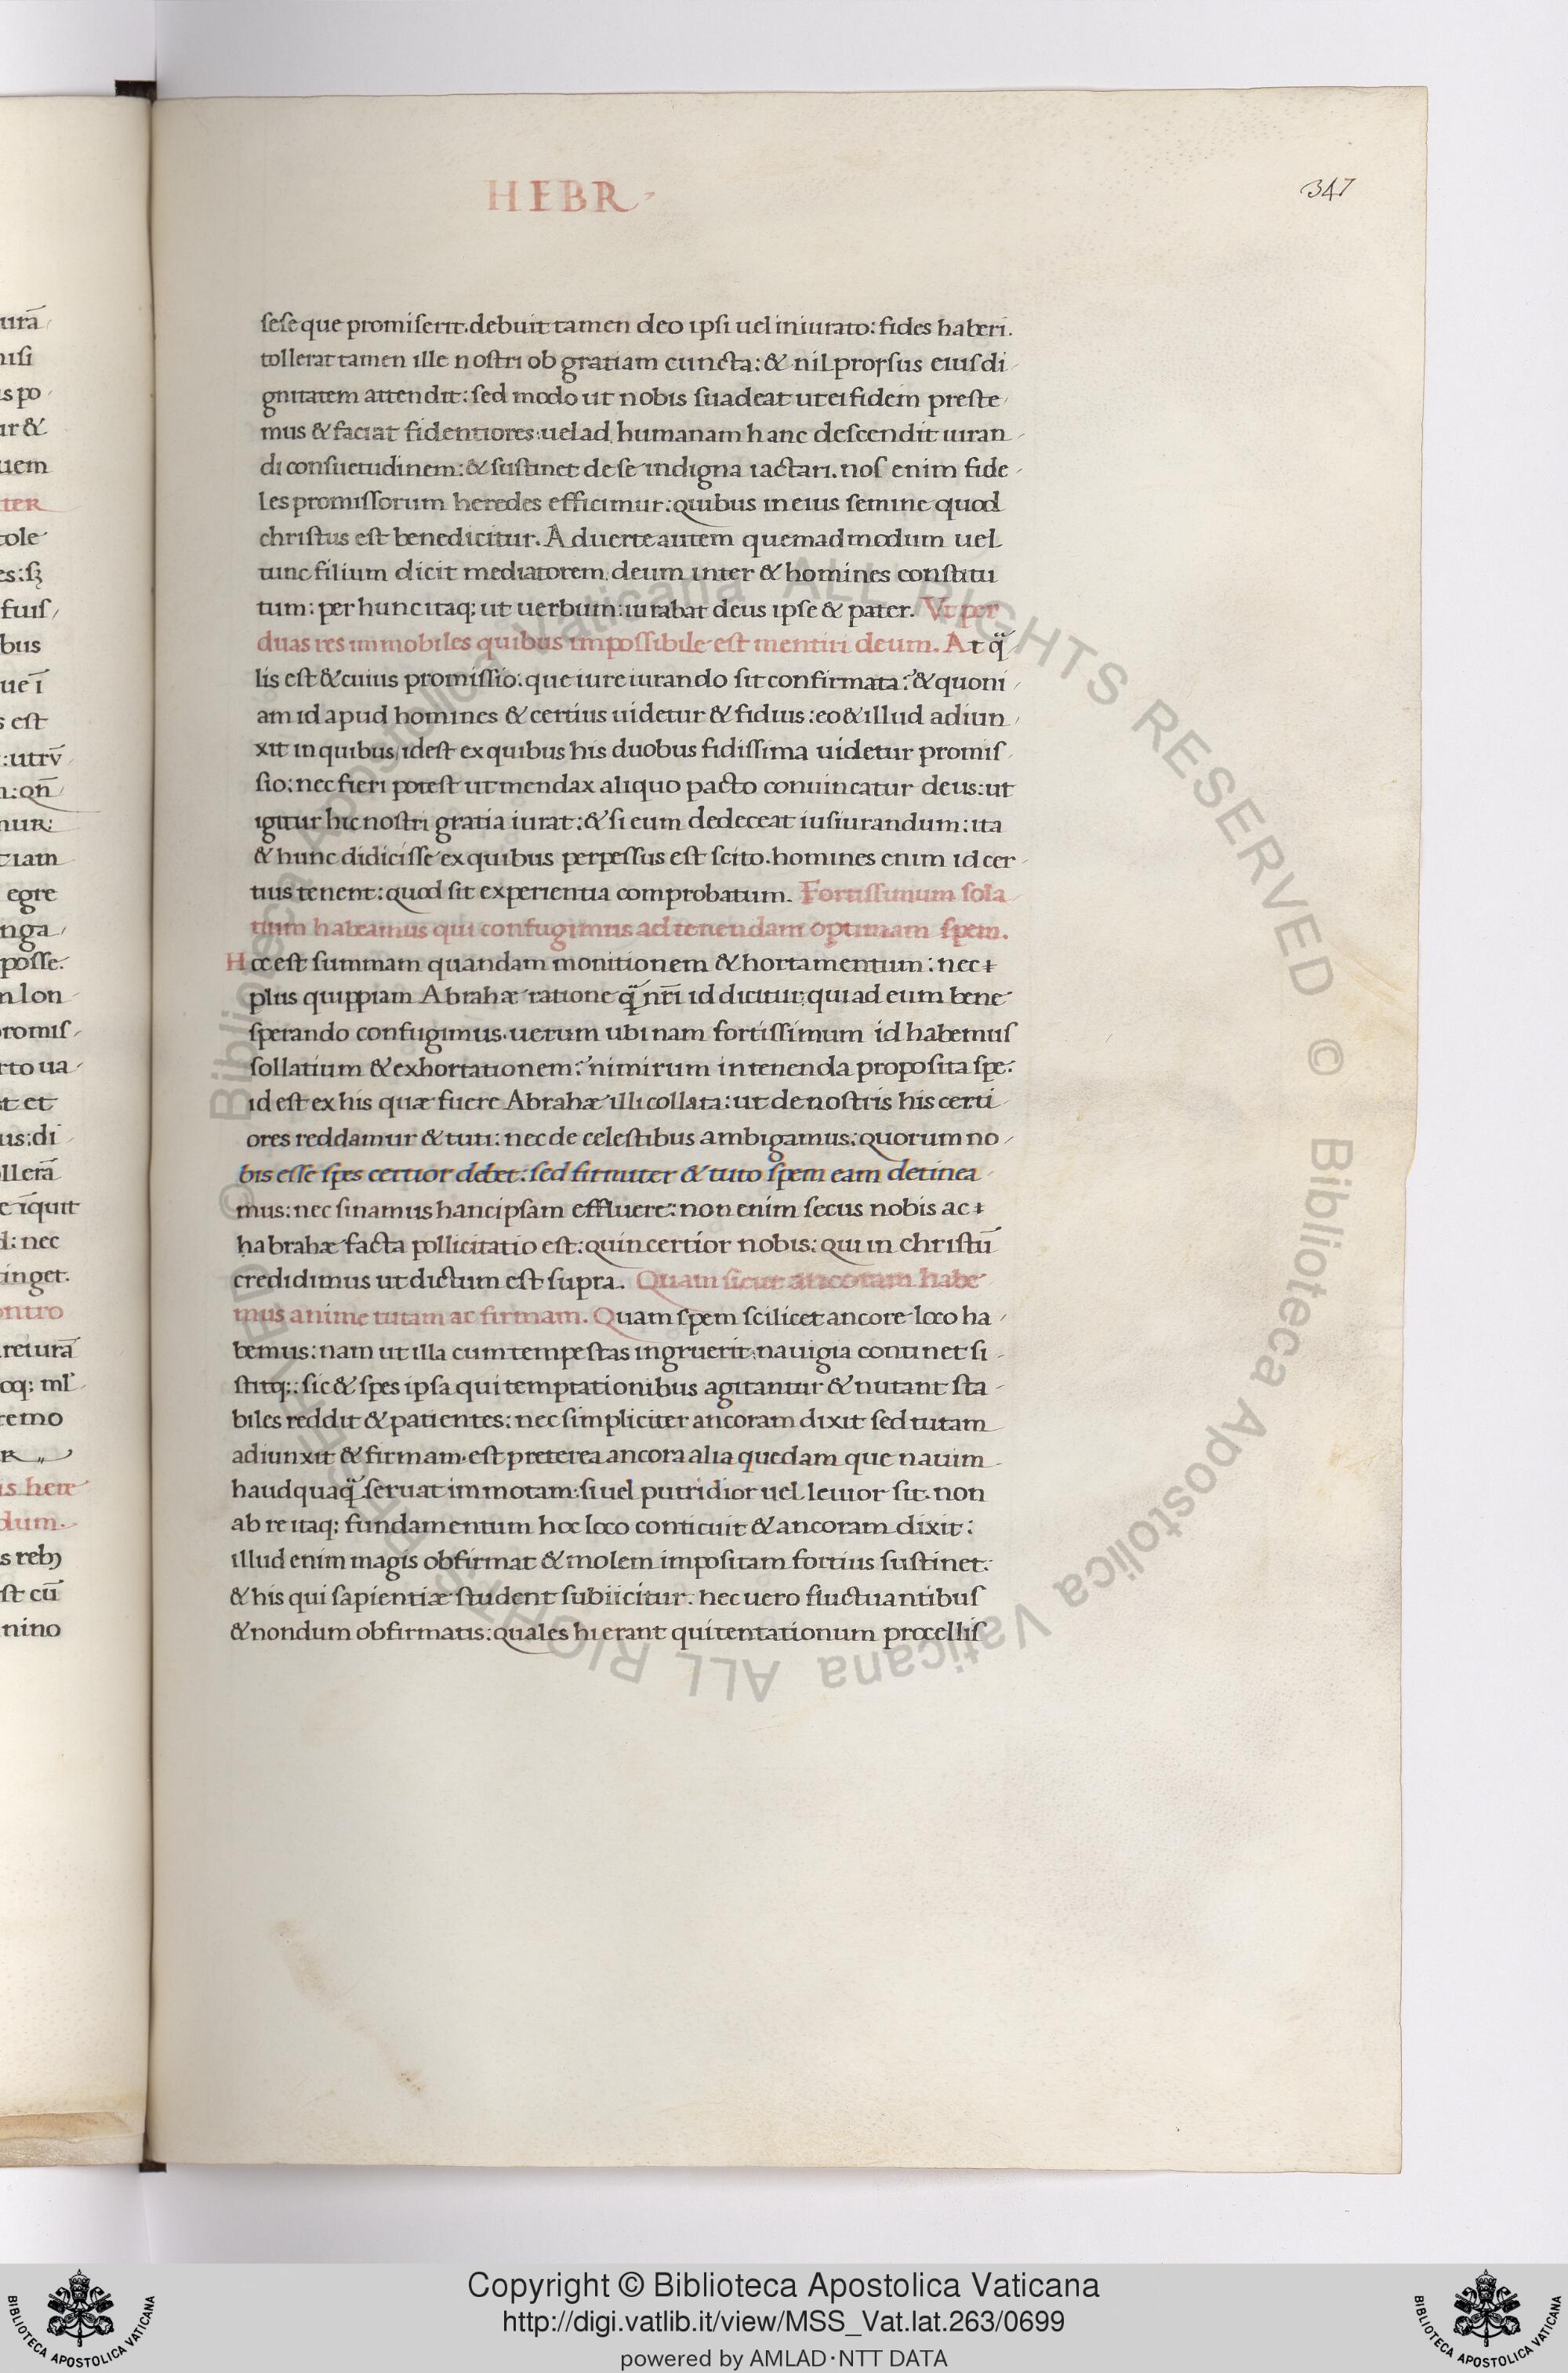 HEBR
347
sese que promiserit. debuit tamen deo ipsi uel iniurato: fides haberi.
tollerat tamen ille nostri ob gratiam cuncta: & nil prorsus eius di
gnitatem attendit: sed modo ut nobis suadeat ut ei fidem preste
mus & faciat fidentiores: uel ad humanam hanc descendit iuran
di consuetudinem: & sustinet de se indigna iactari. nos enim fide
les promissorum heredes efficimur: quibus in eius semine quod
christus est benedicitur. Aduerte autem quemadmodum uel
tunc filium dicit mediatorem deum inter & homines constitu
tum: per hunc itaq; ut uerbum: iurabat deus ipse & pater. Vt per
duas res immobiles quibus impossibile est mentiri deum. At q̃
lis est & cuius promissio: que iureiurando sit confirmata: & quoni
am id apud homines & certius uidetur & fidius: eo & illud adiun
xit in quibus, idest ex quibus his duobus fidissima uidetur promis
sio: nec fieri potest ut mendax aliquo pacto conuincatur deus: ut
igitur hic nostri gratia iurat: & si eum dedeceat iusiurandum: ita
& hunc didicisse ex quibus perpessus est scito. homines enim id cer
tius tenent: quod sit experientia comprobatum. Fortissimum sola
tium habeamus qui confugimus ad tenendam optimam spem.
Hoc est summam quandam monitionem & hortamentum: nec
plus quippiam Abrahæ ratione q̃ nrĩ id dicitur: qui ad eum bene
sperando confugimus. uerum ubi nam fortissimum id habemus
sollatium & exhortationem: nimirum in tenenda proposita spe:
id est ex his quæ fuere Abrahæ illi collata: ut de nostris his certi
ores reddamur & tuti: nec de celestibus ambigamus: quorum no
bis esse spes certior debet: sed firmiter & tuto spem eam detinea
mus: nec sinamus hanc ipsam effluere: non enim secus nobis ac
habrahæ facta pollicitatio est: quin certior nobis: qui in christũ
credidimus ut dictum est supra. Quam sicut ancoram habe
mus anime tutam ac firmam. Quam spem scilicet ancore loco ha
bemus: nam ut illa cum tempestas ingruerit: nauigia continet si
stitq;: sic & spes ipsa qui temptationibus agitantur & nutant sta
biles reddit & patientes: nec simpliciter ancoram dixit sed tutam
adiunxit & firmam. est preterea ancora alia quedam que nauim
haudquaq̃ seruat immotam: si uel putridior uel leuior sit. non
ab re itaq; fundamentum hoc loco conticuit & ancoram dixit:
illud enim magis obfirmat & molem impositam fortius sustinet:
& his qui sapientiæ student subiicitur. nec uero fluctuantibus
& nondum obfirmatis: quales hi erant qui tentationum procellis
Copyright © Biblioteca Apostolica Vaticana
http://digi.vatlib.it/view/MSS_Vat.lat.263/0699
powered by AMLAD·NTT DATA